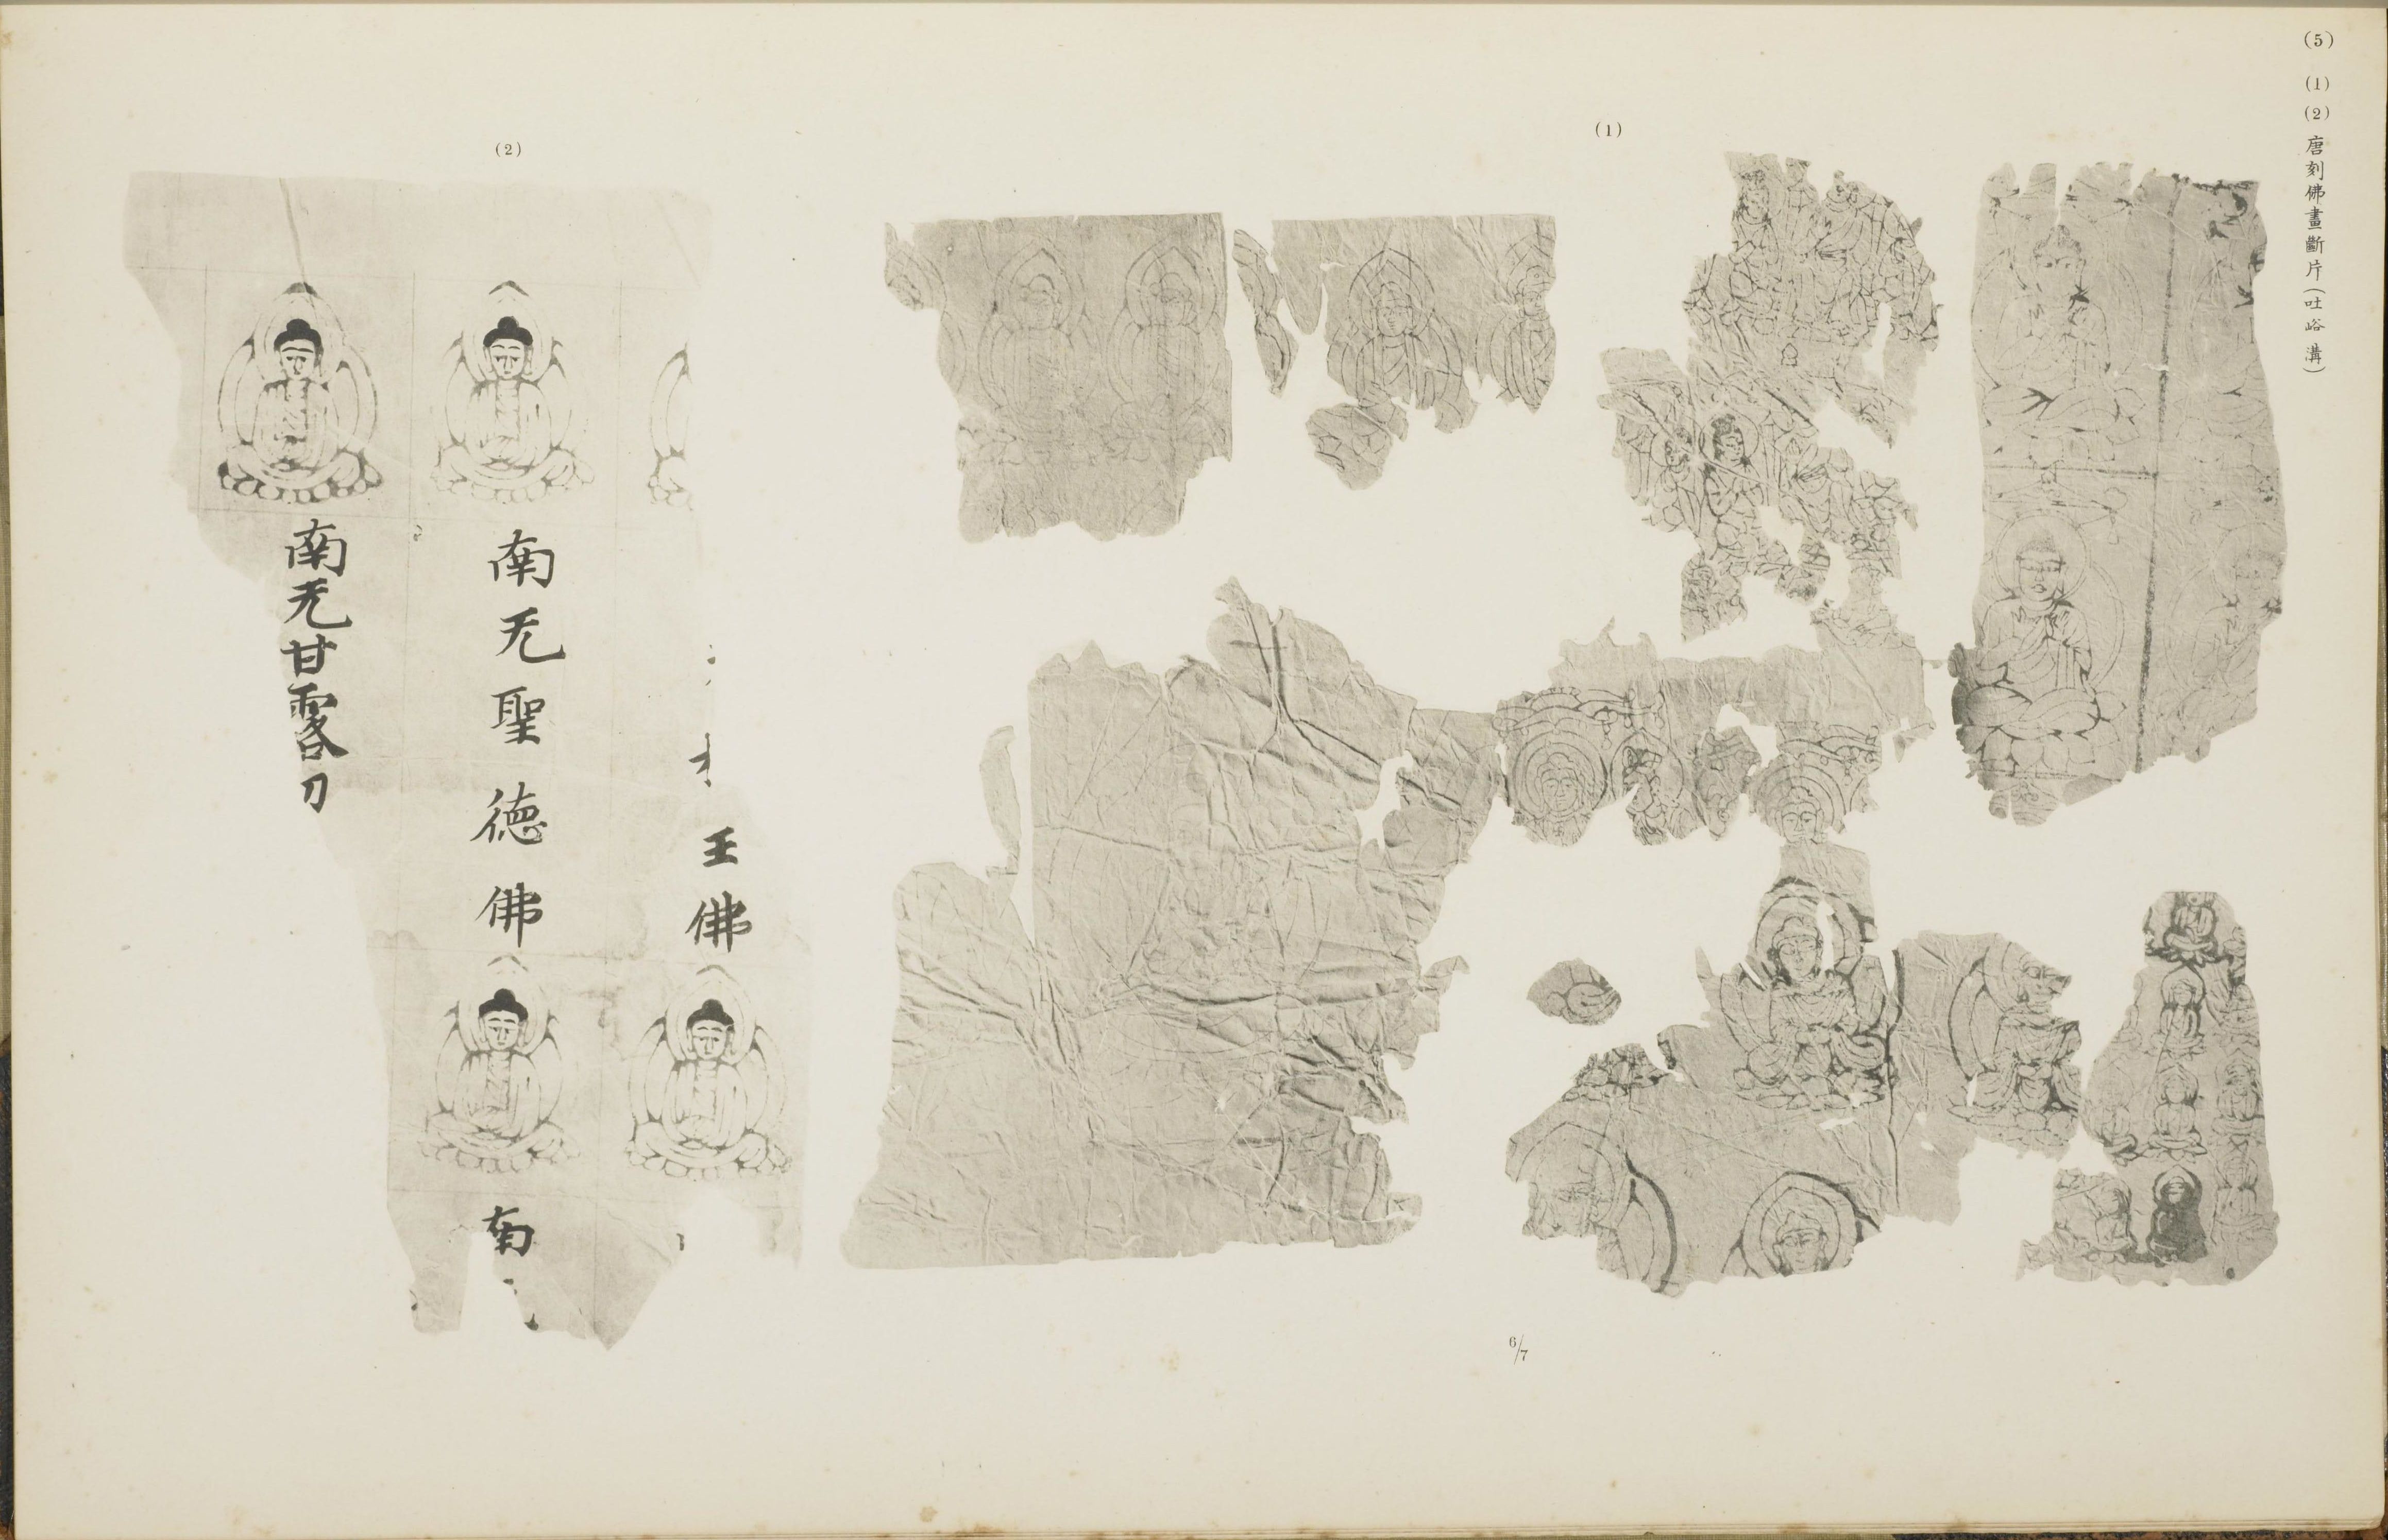 (5)
(1)(2)唐刻佛畫斷片(吐峪溝)
(1)
(2)
王佛
南无聖德佛
南
南无甘露
6/7